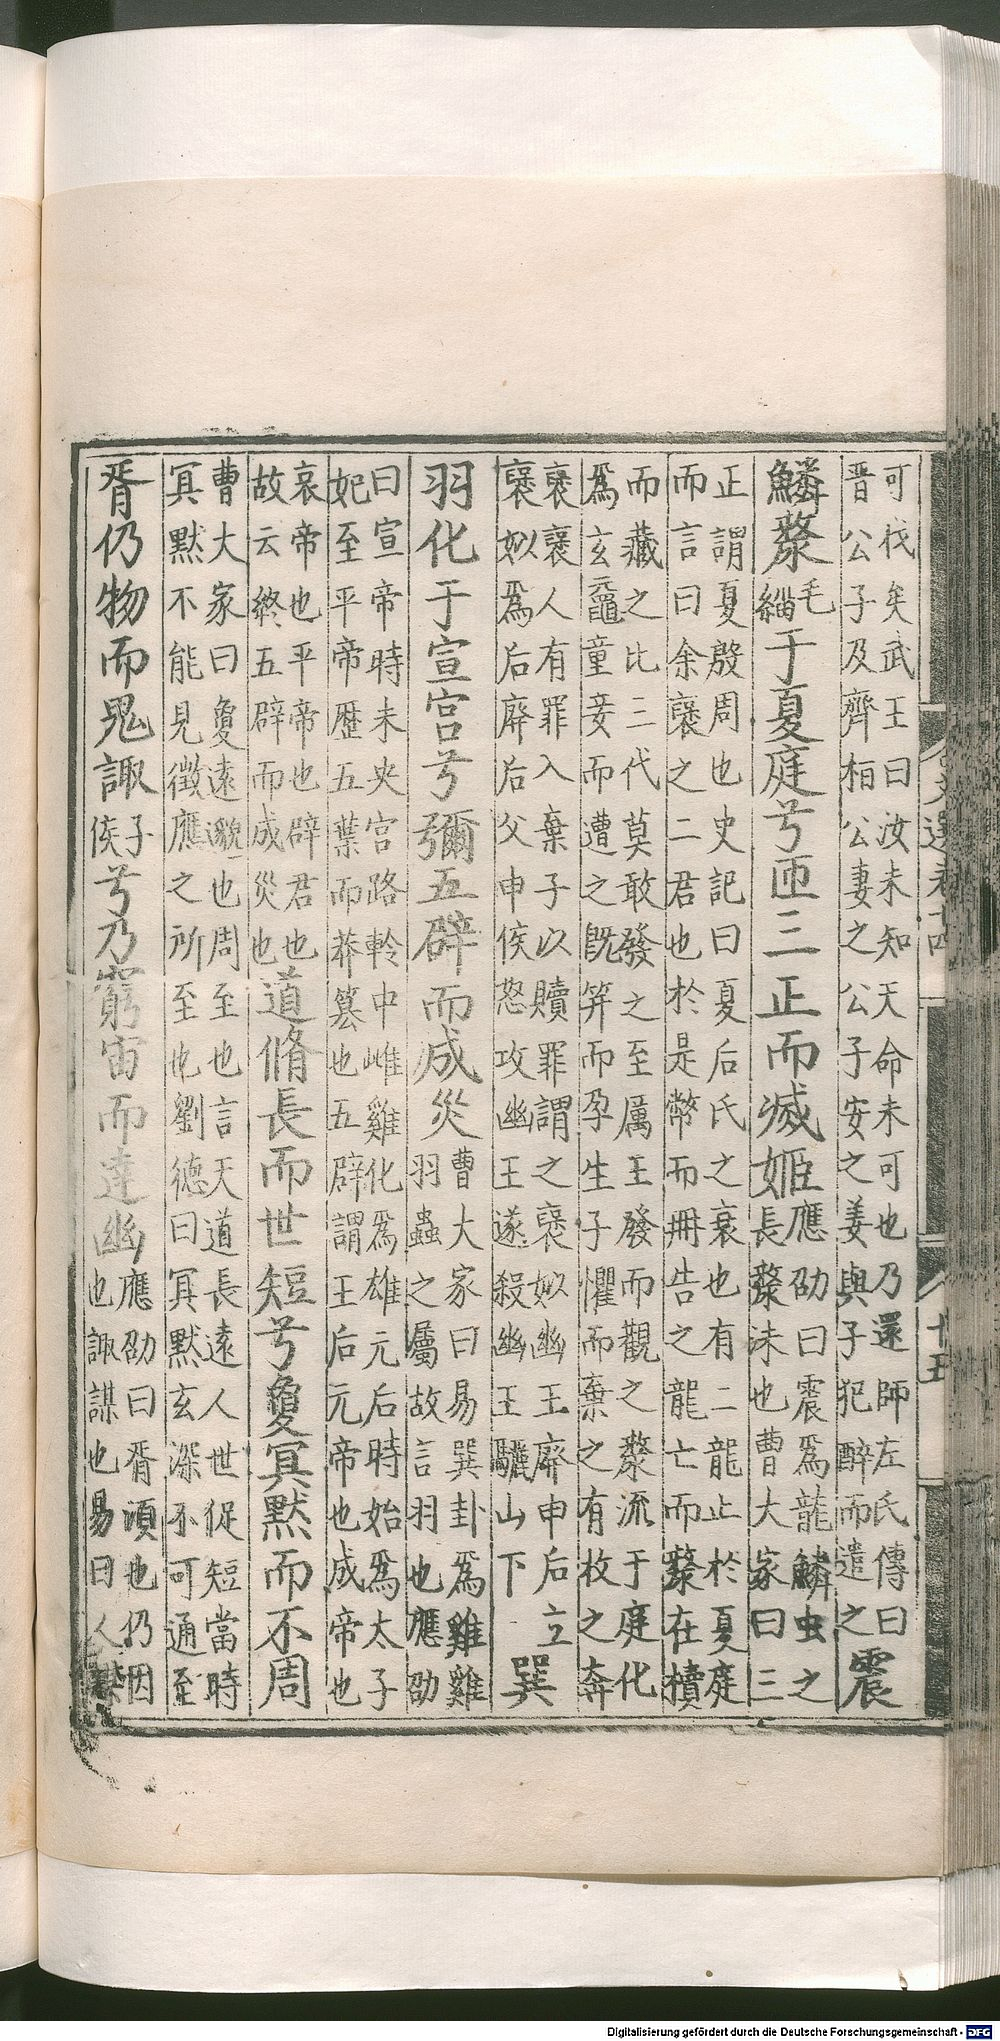 可伐矣武王曰汝未知天命未可也乃還師左氏傳曰
晉公子及齊桓公公妻之公子安之姜與子犯醉而遣之震
鱗漦毛緇于夏庭兮匝三正而滅姬應劭曰震爲龍鱗虫之
長漦沫也曹大家曰三
正謂夏殷周也史記曰夏后氏之衰也有二龍止於夏庭
而言曰余襃之二君也於是幣而冊告之龍亡而漦在櫝
而藏之比三代莫敢發之至厲王發而觀之漦流于庭化
爲玄黿童妾而遭之旣筓而孕生子懼而棄之有收之奔
襃襃人有罪入棄子以贖罪謂之襃姒幽王廢申后立
襃姒爲后廢后父申侯怒攻幽王遂殺幽王驪山下巽
羽化于宣宮兮彌五辟而成災曹大家曰易巽卦爲雞雞
羽蟲之屬故言羽也應劭
曰宣帝時未央宮路軨中雌雞化爲雄元后時始爲太子
妃至平帝歷五葉而莽簒也五辟謂王后元帝也成帝也
哀帝也平帝也辟君也
故云終五辟而成災也道脩長而世短兮敻冥默而不周
曹大家曰敻遠邈也周至也言天道長遠人世促短當時
冥默不能見徵應之所至也劉德曰冥默玄深不可通至
胥仍物而鬼諏子侯兮乃窮宙而達幽應劭曰胥須也仍因
也諏謀也易曰人
文選卷十四
十五
Digitalisierung gefördert durch die Deutsche Forschungsgemeinschaft - DFG